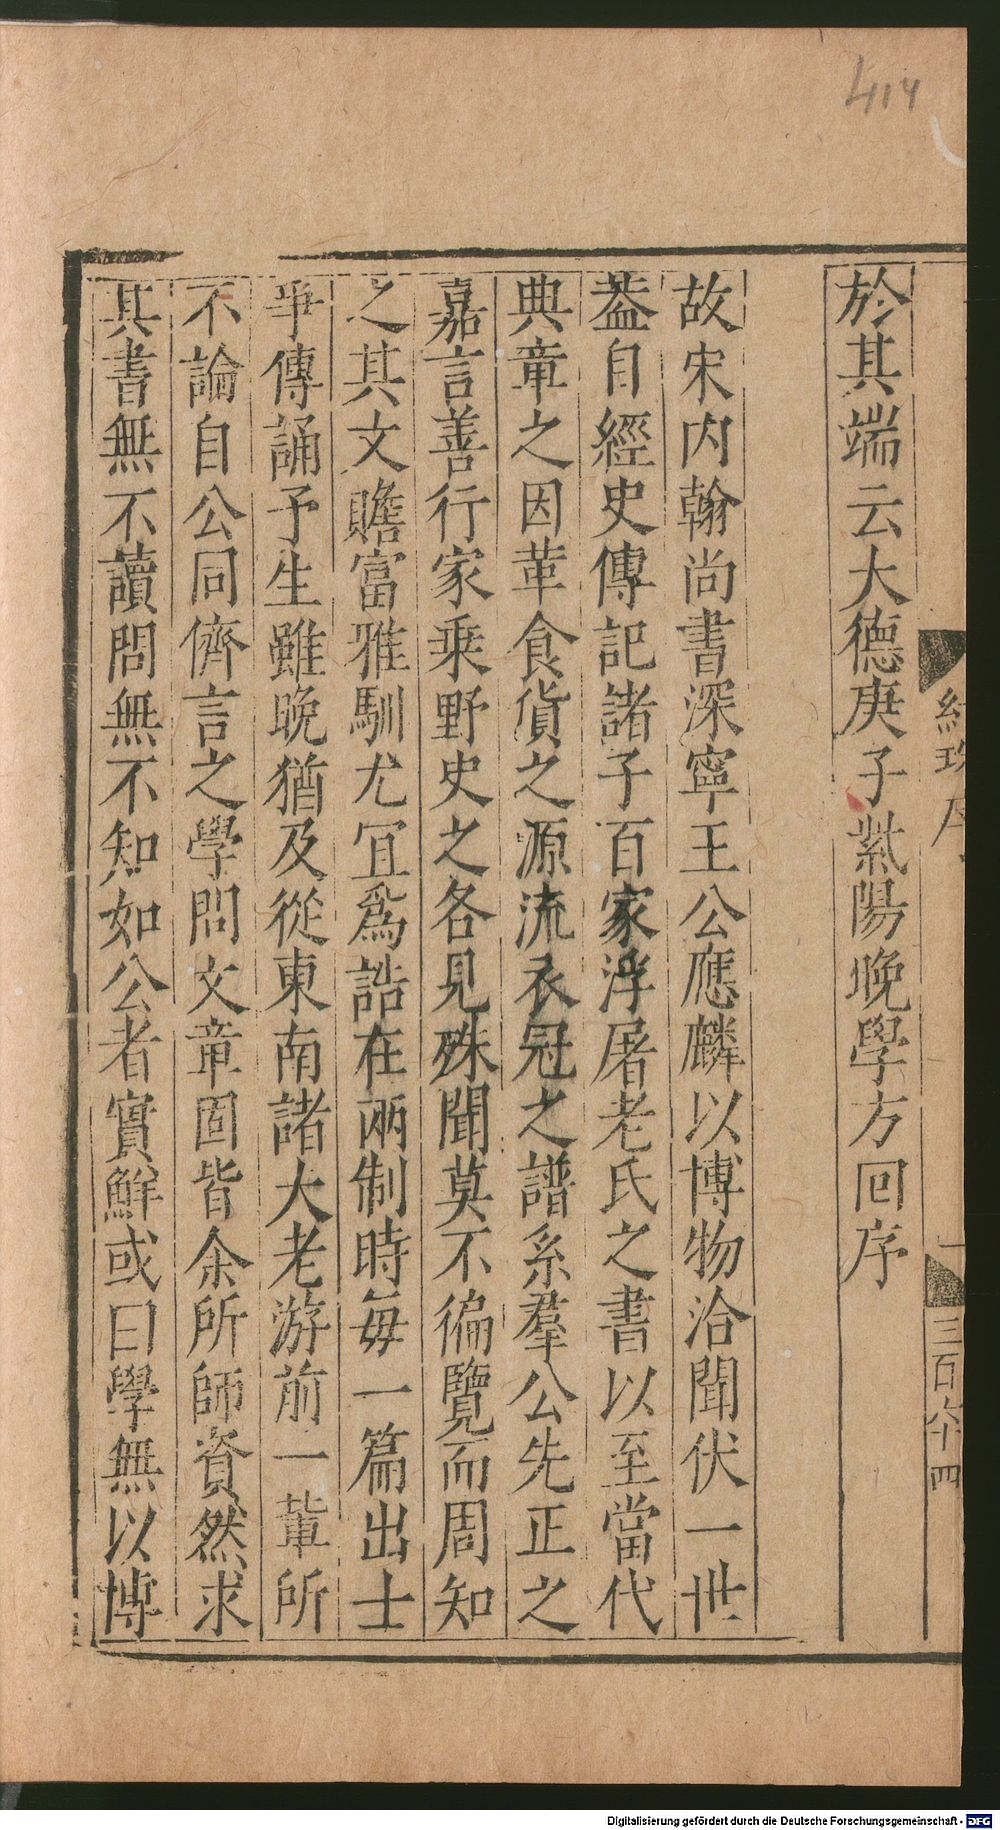 414
紺珠序
一
三百六十四
於其端云大德庚子紫陽晚學方回序
故宋内翰尚書深寧王公應麟以博物洽聞伏一世
葢自經史傳記諸子百家浮屠老氏之書以至當代
典章之因革食貨之源流衣冠之譜系羣公先正之
嘉言善行家乘野史之各見殊聞莫不徧覽而周知
之其文贍富雅馴尤冝爲誥在兩制時每一篇出士
爭傳誦予生雖晚猶及從東南諸大老游前一輩所
不論自公同儕言之學問文章固皆余所師資然求
其書無不讀問無不知如公者實鮮或曰學無以博
Digitalisierung gefördert durch die Deutsche Forschungsgemeinschaft - DFG